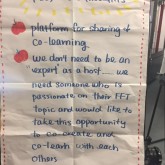 platform for sharing &
co-learning
we don't need to be an
expert as a host... we
need someone who is
passionate on their
topic and would like to
take this opportunity
to co-create and
co-learn with each
others